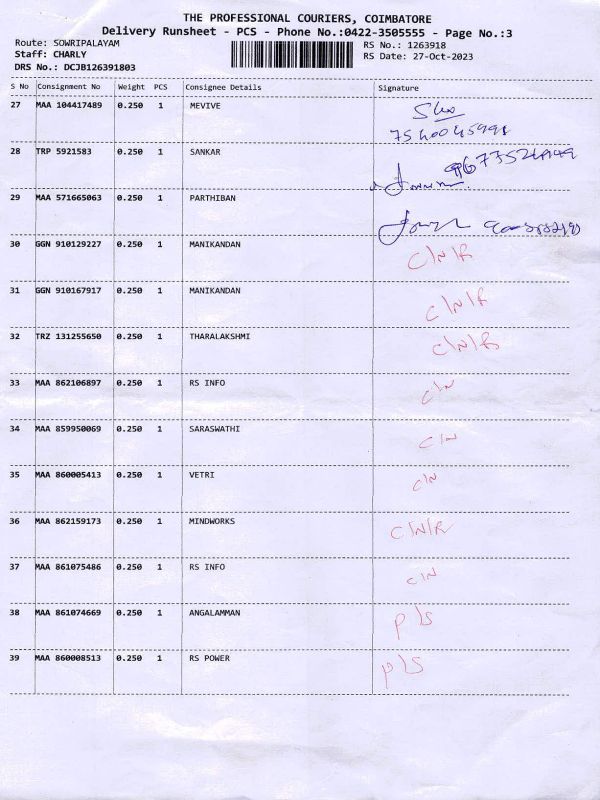 THE PROFESSIONAL COURIERS, COIMBATORE
Delivery Runsheet - PCS - Phone No.:0422-3505555 - Page No.:3
Route: SOWRIPALAYAM
Staff: CHARLY
DRS No.: DCJB126391803
RS No.: 1263918
RS Date: 27-Oct-2023
S No Consignment No Weight PCS Consignee Details Signature
27 MAA 104417489 0.250 1 MEVIVE
28 TRP 5921583 0.250 1 SANKAR
29 MAA 571665063 0.250 1 PARTHIBAN
30 GGN 910129227 0.250 1 MANIKANDAN C/N/R
31 GGN 910167917 0.250 1 MANIKANDAN C/N/R
32 TRZ 131255650 0.250 1 THARALAKSHMI C/N/R
33 MAA 862106897 0.250 1 RS INFO C/N
34 MAA 859950069 0.250 1 SARASWATHI C/N
35 MAA 860005413 0.250 1 VETRI C/N
36 MAA 862159173 0.250 1 MINDWORKS C/N/R
37 MAA 861075486 0.250 1 RS INFO C/N
38 MAA 861074669 0.250 1 ANGALAMMAN P/S
39 MAA 860008513 0.250 1 RS POWER P/S